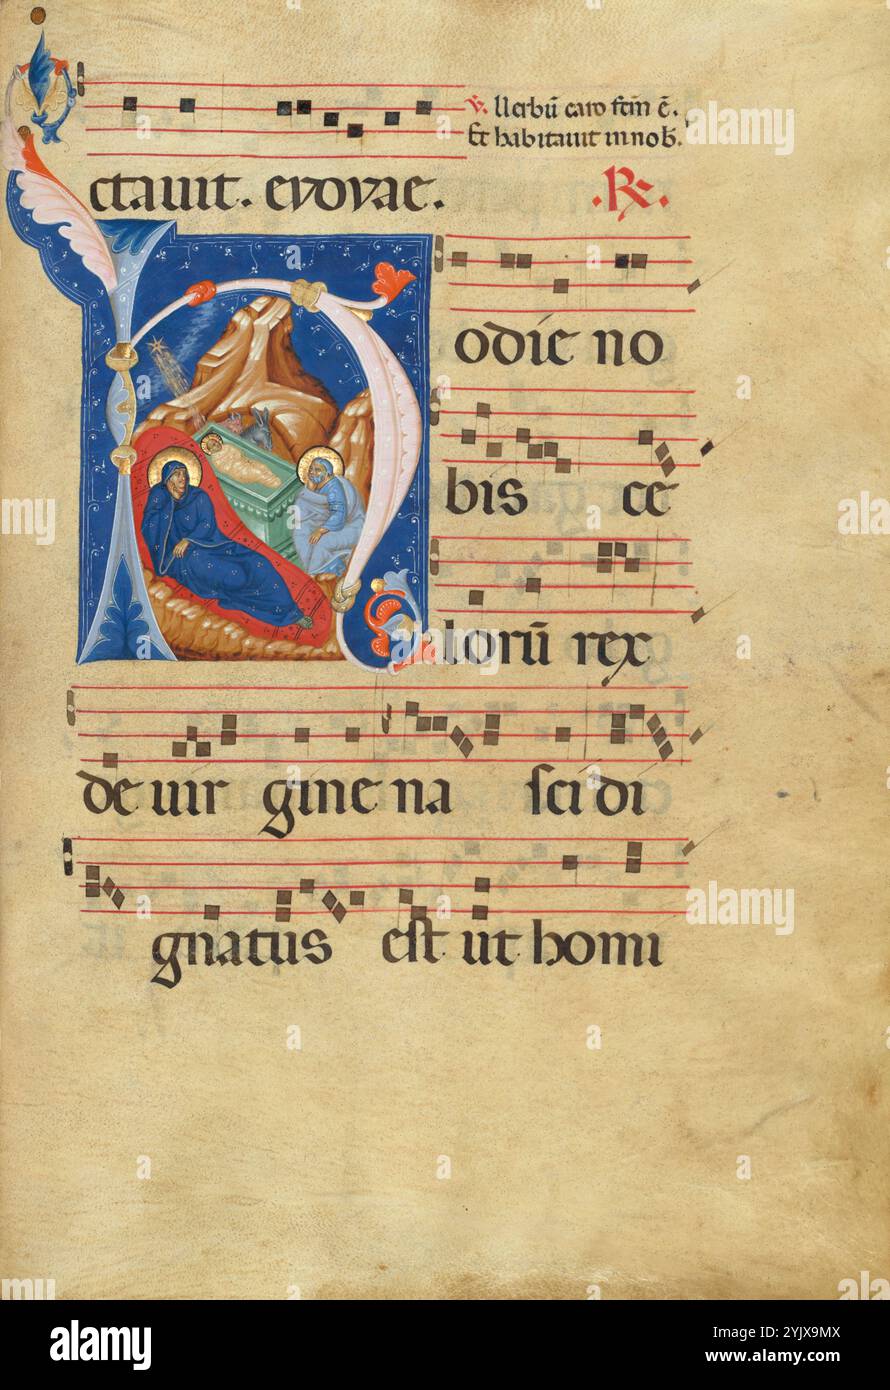 ℣. Uerbū caro fcm̄ ē.
Et habitauit in nob̄.
ctauit. evovae. .℟.
odie no
bis cę
lorū rex
de uir gine na sci di
gnatus est ut homi
alamy
Image ID: 2YJX9MX
www.alamy.com